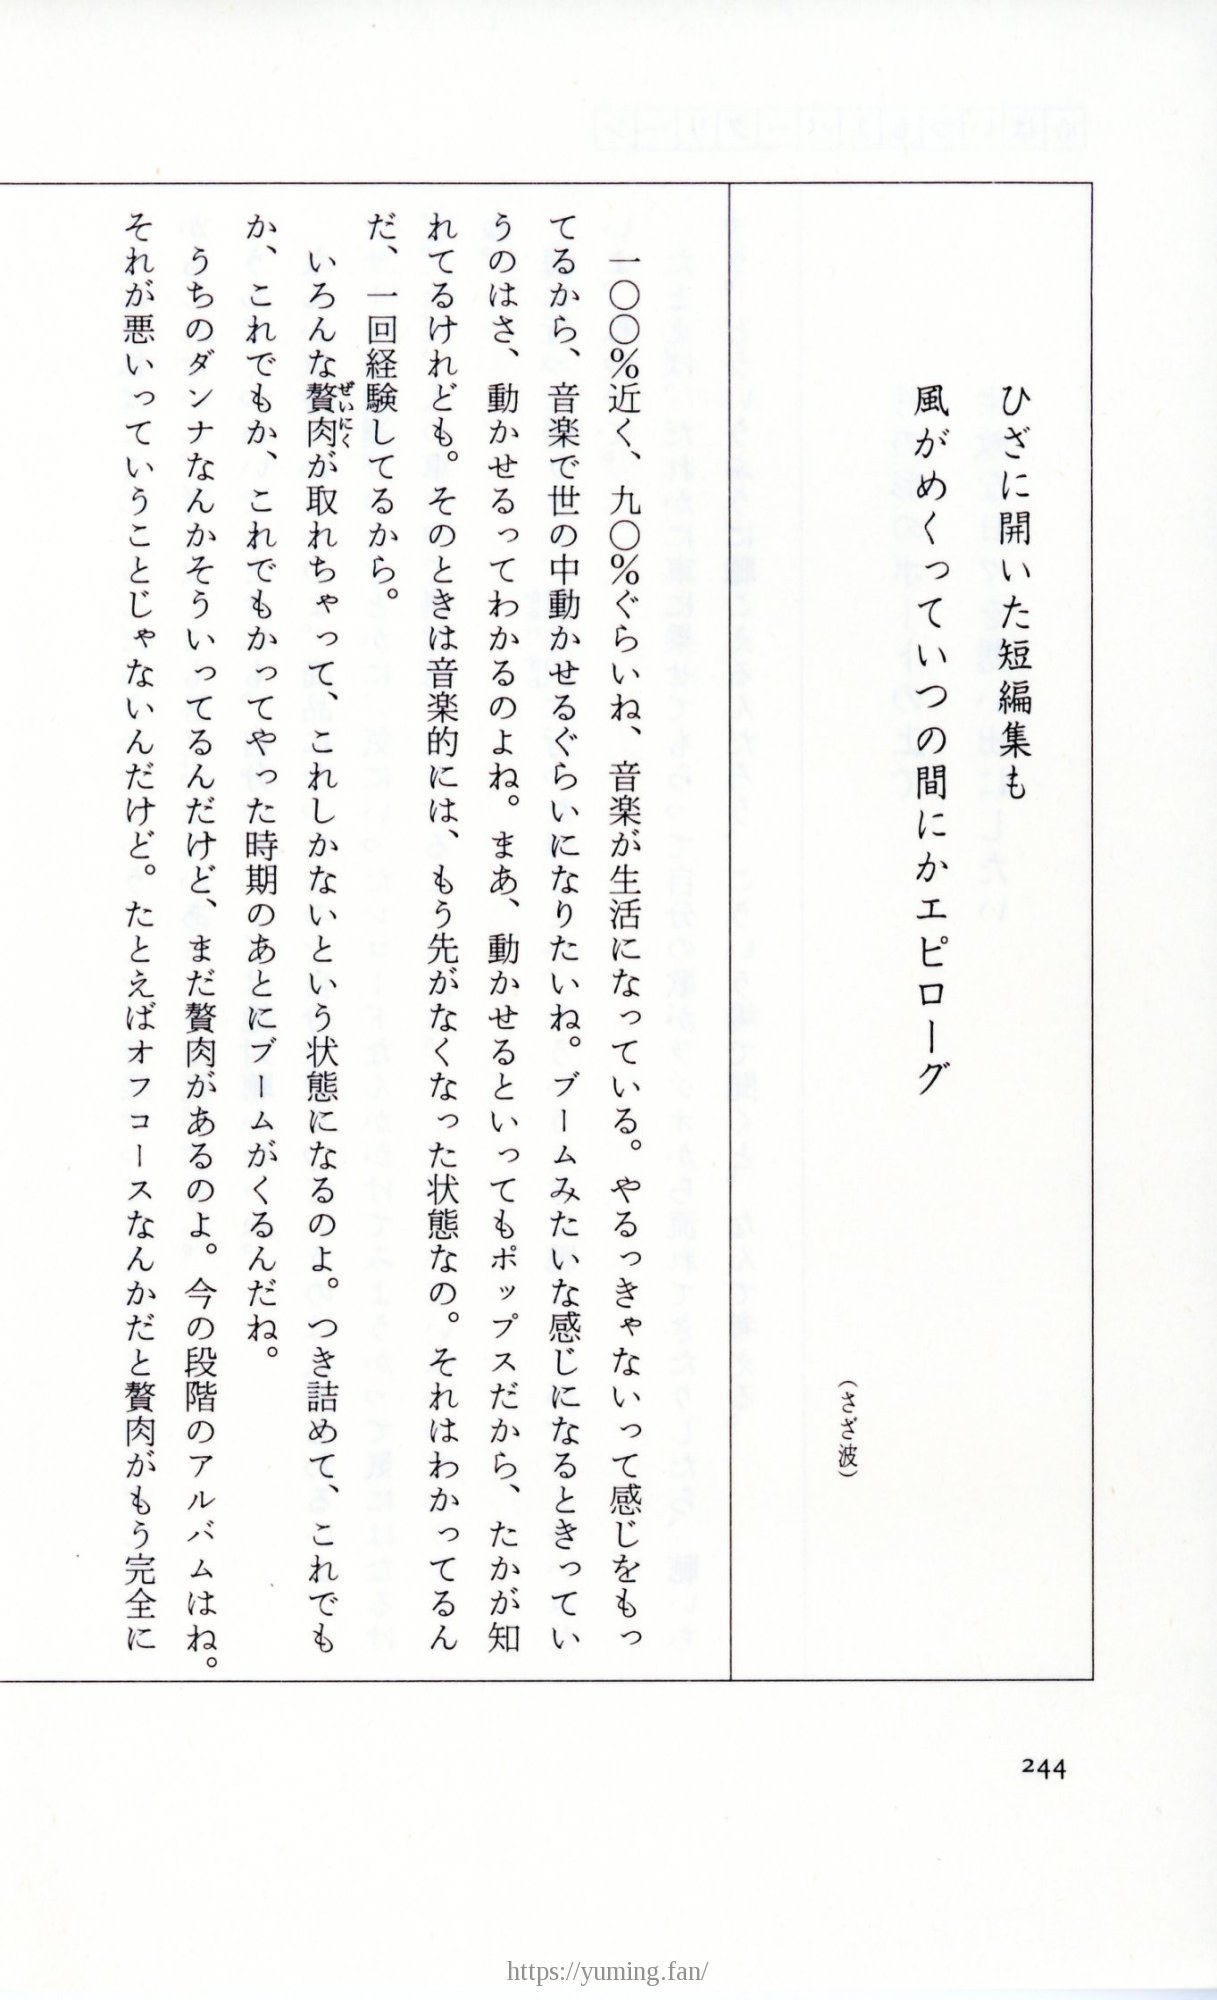 ひざに開いた短編集も
風がめくっていつの間にかエピローグ
（さざ波）
一〇〇％近く、九〇％ぐらいね、音楽が生活になっている。やるっきゃないって感じをもっ
てるから、音楽で世の中動かせるぐらいになりたいね。ブームみたいな感じになるときってい
うのはさ、動かせるってわかるのよね。まあ、動かせるといってもポップスだから、たかが知
れてるけれども。そのときは音楽的には、もう先がなくなった状態なの。それはわかってるん
だ、一回経験してるから。
いろんな贅肉が取れちゃって、これしかないという状態になるのよ。つき詰めて、これでも
ぜいにく
か、これでもか、これでもかってやった時期のあとにブームがくるんだね。
うちのダンナなんかそういってるんだけど、まだ贅肉があるのよ。今の段階のアルバムはね。
それが悪いっていうことじゃないんだけど。たとえばオフコースなんかだと贅肉がもう完全に
244
https://yuming.fan/